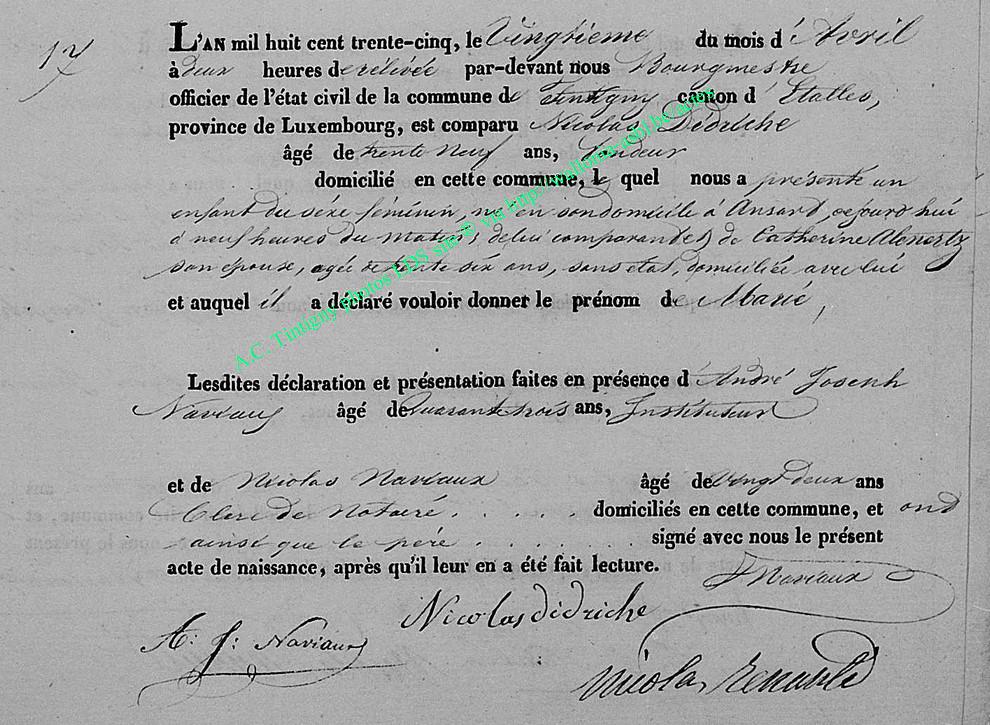 17
L'AN mil huit cent trente-cinq, le Vingtième du mois d'Avril
à deux heures de rélévée par-devant nous Bourgmestre
officier de l'état civil de la commune de Tintigny canton d'Etalles,
province de Luxembourg, est comparu Nicolas Dédriche
âgé de trente Neuf ans, Tandeur
domicilié en cette commune, le quel nous a présenté un
enfant du sexe féminin, né en son domicile à Ansart, cejourd'hui
à neuf heures du matin, de lui comparant et de Catherine
son épouse, agée de trente six ans, sans état, domiciliée avec lui
et auquel il a déclaré vouloir donner le prénom de Marie,
Lesdites déclaration et présentation faites en présence d'André Joseph
Naviaux âgé de Quarante trois ans, Instituteur
et de Nicolas Naviaux âgé de vingt deux ans
Clerc de Notaire. . . . domiciliés en cette commune, et ont
ainsi que le père . . . . . . signé avec nous le présent
acte de naissance, après qu'il leur en a été fait lecture.
Naviaux
Nicolas didriche
A: J: Naviaux
Nicolas
A.C. Tintigny photos LDS site © via http://wallonia-asbl.be/actes